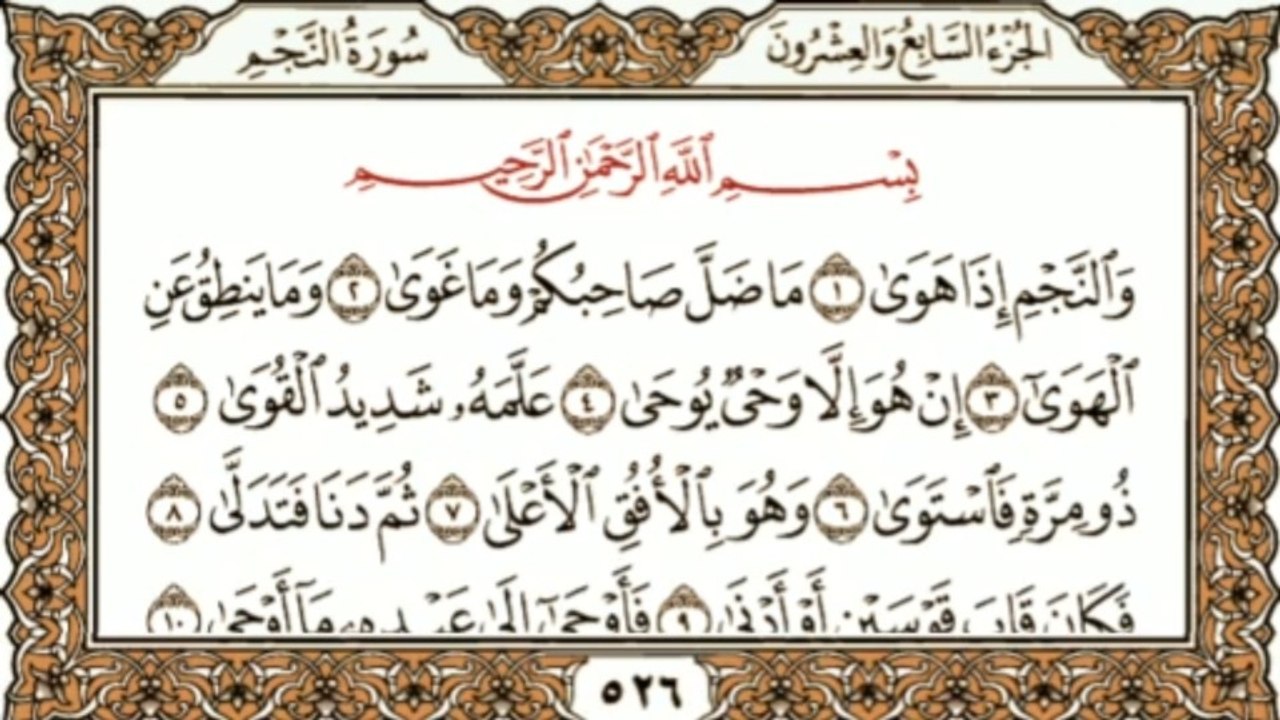 الجُزْءُ السَّابِعُ وَالعِشْرُونَ
سُورَةُ النَّجْمِ
بِسْمِ ٱللَّهِ ٱلرَّحْمَٰنِ ٱلرَّحِيمِ
وَٱلنَّجْمِ إِذَا هَوَىٰ ١ مَا ضَلَّ صَاحِبُكُمْ وَمَا غَوَىٰ ٢ وَمَا يَنطِقُ عَنِ
ٱلْهَوَىٰٓ ٣ إِنْ هُوَ إِلَّا وَحْىٌ يُوحَىٰ ٤ عَلَّمَهُۥ شَدِيدُ ٱلْقُوَىٰ ٥
ذُو مِرَّةٍ فَٱسْتَوَىٰ ٦ وَهُوَ بِٱلْأُفُقِ ٱلْأَعْلَىٰ ٧ ثُمَّ دَنَا فَتَدَلَّىٰ ٨
فَكَانَ قَابَ قَوْسَيْنِ أَوْ أَدْنَىٰ ٩ فَأَوْحَىٰٓ إِلَىٰ عَبْدِهِۦ مَآ أَوْحَىٰ ١٠
٥٢٦